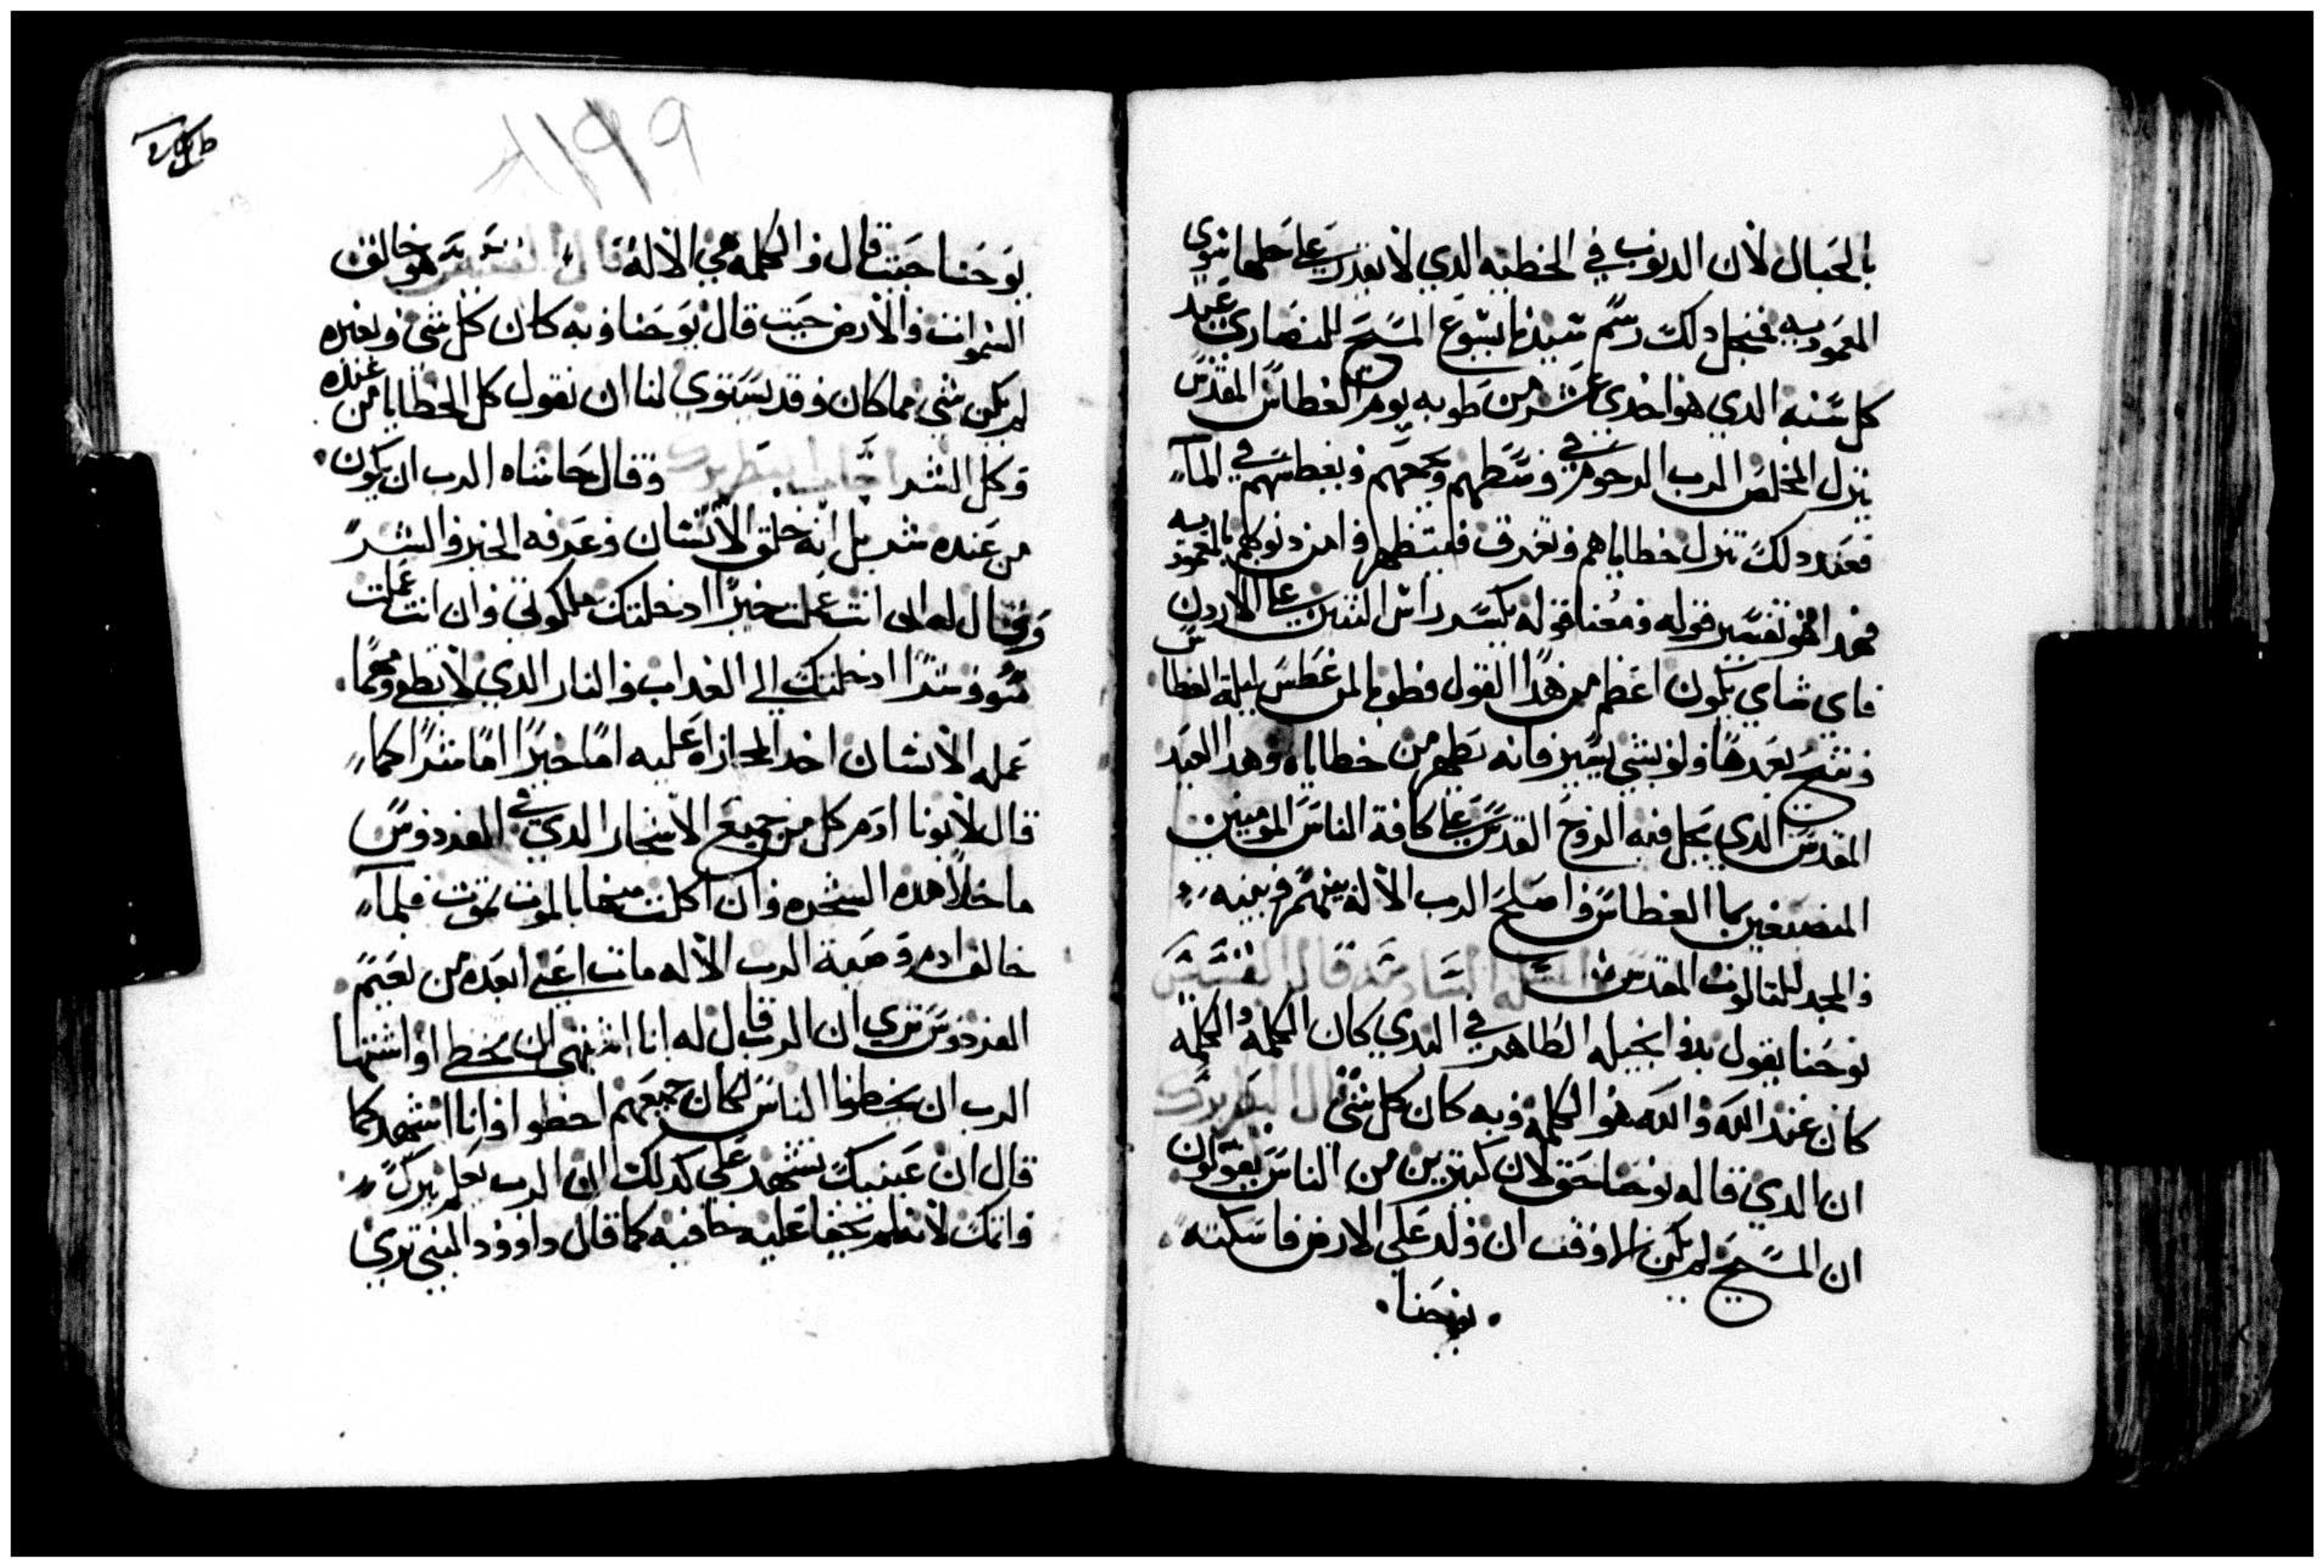 بالجبال لان الدنوب في الخطيه الدي لا يقدر علي حملها سوي
المعموديه فمنجل دلك رسم سيدنا يسوع المسيح للنصاري عيد
كل سنه الدي هو احدي عشر من طوبه يوم الغطاس المقدس
ينزل المخلص الرب الرحوم في وسطهم ويجمعهم ويغطسهم في الماء
فعند دلك تنزل خطاياهم وتغرق فليتطهروا من دنوبهم بالمعموديه
فهدا هو تفسير قوله ومعنا قوله يكسر راس التنين علي الاردن
فاي شاي يكون اعظم من هدا القول فطوبا لمن غطس ليلة الغطاس
وسبح بعدها ولو بشي يسير فانه تطهر من خطاياه وهدا العيد
المقدس الدي يحل فيه الروح القدس علي كافة الناس المومنين
المنصبغين بما الغطاس واصلح الرب الاله بينهم وبينه
والمجد للتالوت المقدس المسله السادسه قال القسيس
يوحنا يقول بدو انجيله الطاهر في البدي كان الكلمه والكلمه
كان عند الله والله هو الكلمه وبه كان كل شي قال البطريرك
ان الدي قاله يوحنا حق لان كتيرين من الناس يقولون
ان المسيح لم يكن الا وقت ان ولد علي الارض فاسكته
يوحنا
١١٩٩
يوحنا حيت قال والكلمه هي الاله قال القسيس هو خالق
السموات والارض حيت قال يوحنا وبه كان كل شي وبغيره
لم يكن شي مما كان وقد يستوي لنا ان نقول كل الخطايا من عنده
وكل الشر اجاب البطريرك وقال حاشاه الرب ان يكون
من عنده شر بل انه خلق الانسان وعرفه الخير والشر
وقال له ان انت عملت خيرًا ادخلتك ملكوتي وان انت عملت
سوو وشرا ادخلتك الي العداب والنار الدي لا تطفي ومهما
عمله الانسان اخد المجازاه عليه امًا خيرًا امًا شرًا كما
قال لابونا ادم كل من جميع الاشجار الدي في الفردوس
ما خلا هده الشجره وان اكلت منها بالموت تموت فلما
خالف ادم وصية الرب الاله مات اعني ابعده من نعيم
الفردوس تري ان الرب قال له انا اشتهي لن يخطي او اشتها
الرب ان يخطوا الناس لكان جميعهم اخطوا وانا اشهد كما
قال ان عينيك تشهد علي كدلك ان الرب يعلم بركً
واتمك لانه لم تخفا عليه خافيه كما قال داوود النبي تري